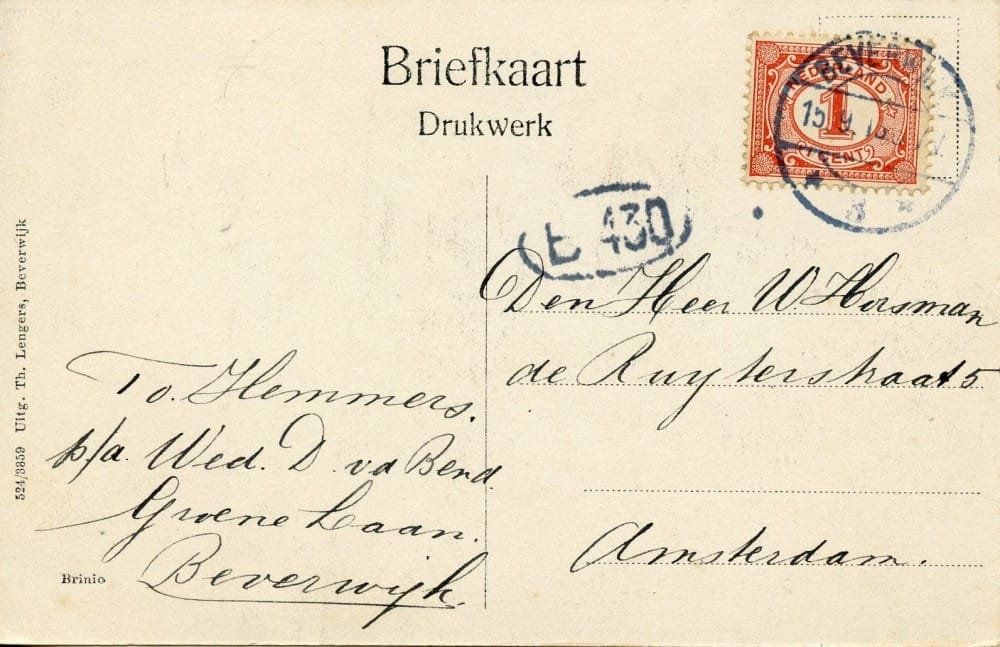 Briefkaart
Drukwerk
NEDERLAND
1
CENT
BEVERWIJK
E 430
Den Heer W. Horsman
de Ruyterstraat 5
Amsterdam.
To. Hemmers.
p/a. Wed. D. v d Bend
Groene Laan.
Beverwijk.
Brinio
524/3859 Uitg. Th. Lengers, Beverwijk